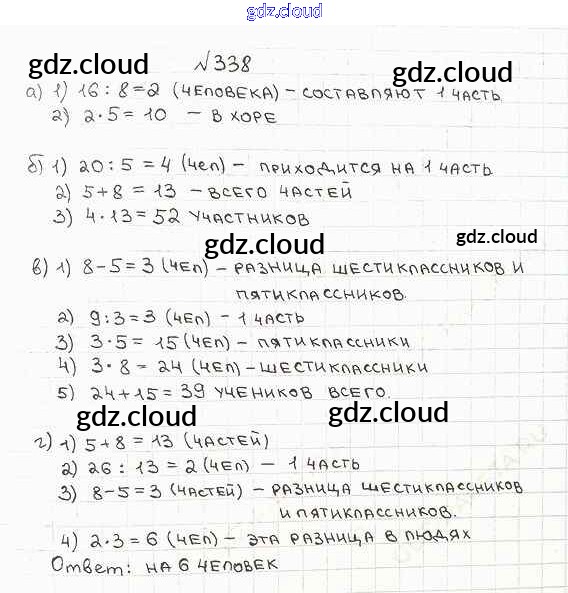 gdz.cloud
№338
gdz.cloud gdz.cloud
а) 1) 16 : 8 = 2 (ЧЕЛОВЕКА) – СОСТАВЛЯЮТ 1 ЧАСТЬ
2) 2 · 5 = 10 – В ХОРЕ
б) 1) 20 : 5 = 4 (ЧЕЛ) – ПРИХОДИТСЯ НА 1 ЧАСТЬ
2) 5 + 8 = 13 – ВСЕГО ЧАСТЕЙ
3) 4 · 13 = 52 УЧАСТНИКОВ
gdz.cloud gdz.cloud
в) 1) 8 – 5 = 3 (ЧЕЛ) – РАЗНИЦА ШЕСТИКЛАССНИКОВ И
ПЯТИКЛАССНИКОВ.
2) 9 : 3 = 3 (ЧЕЛ) – 1 ЧАСТЬ
3) 3 · 5 = 15 (ЧЕЛ) – ПЯТИКЛАССНИКИ
4) 3 · 8 = 24 (ЧЕЛ) – ШЕСТИКЛАССНИКИ
5) 24 + 15 = 39 УЧЕНИКОВ ВСЕГО.
gdz.cloud gdz.cloud
г) 1) 5 + 8 = 13 (ЧАСТЕЙ)
2) 26 : 13 = 2 (ЧЕЛ) – 1 ЧАСТЬ
3) 8 – 5 = 3 (ЧАСТЕЙ) – РАЗНИЦА ШЕСТИКЛАССНИКОВ
И ПЯТИКЛАССНИКОВ.
4) 2 · 3 = 6 (ЧЕЛ) – ЭТА РАЗНИЦА В ЛЮДЯХ
Ответ: НА 6 ЧЕЛОВЕК